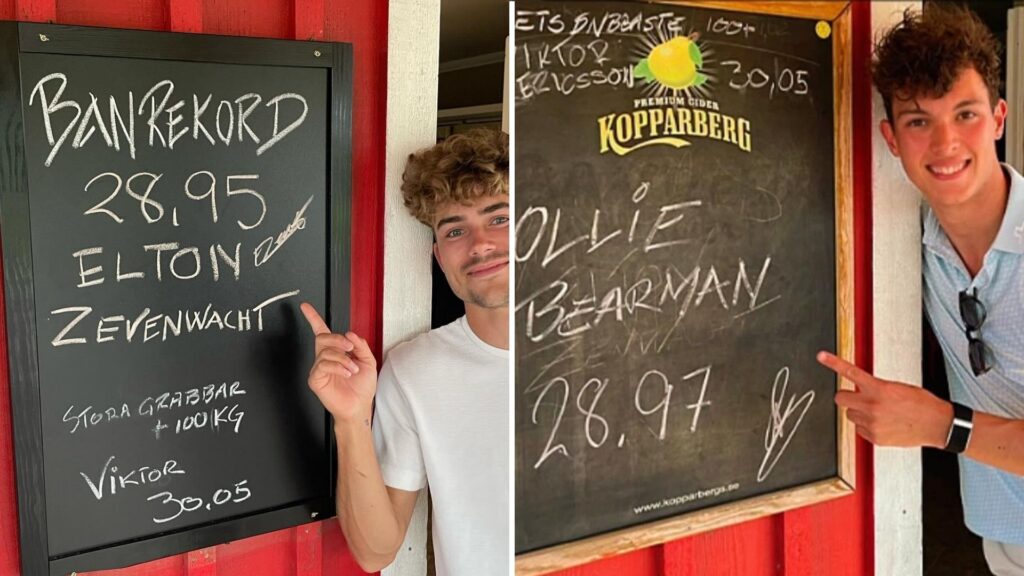 BANREKORD
28,95
ELTON
ZEVENWACHT
STORA GRABBAR
+100KG
VIKTOR
30.05
ETS BNBEASTE 100+
IKTOR
ERICSSON 30,05
PREMIUM CIDER
KOPPARBERG
OLLIE
BEARMAN
28.97
www.kopparbergs.se